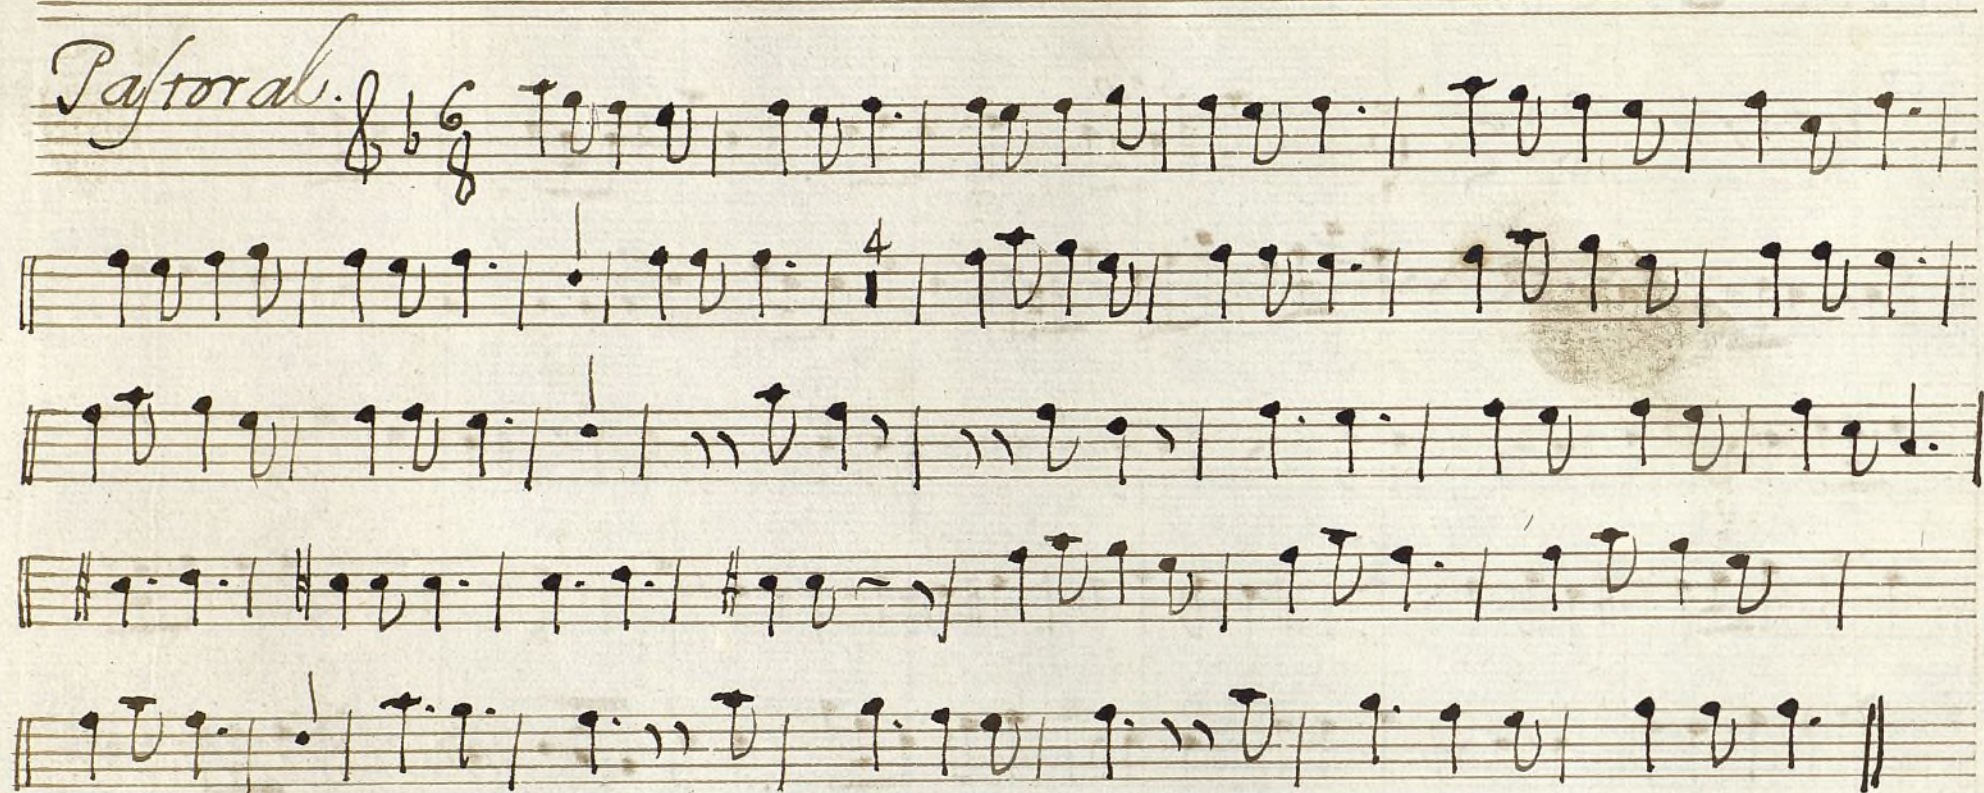 Paſtoral.
6
8
4